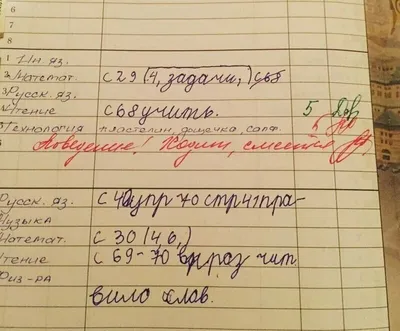 6
7
8
1 Ин. яз.
2 Математ. с 29 (4, задачи,) с68
3 Русск. яз.
Чтение с68 учить. 5
Технология пластелин, дощечка, салф.
Поведение! Ходит, смеется
Русск. яз. с 40 упр 70 стр 41 пра-
Музыка
Математ. с 30 (4, 6,)
Чтение с 69-70 выраз чит
Физ-ра
вило слов.